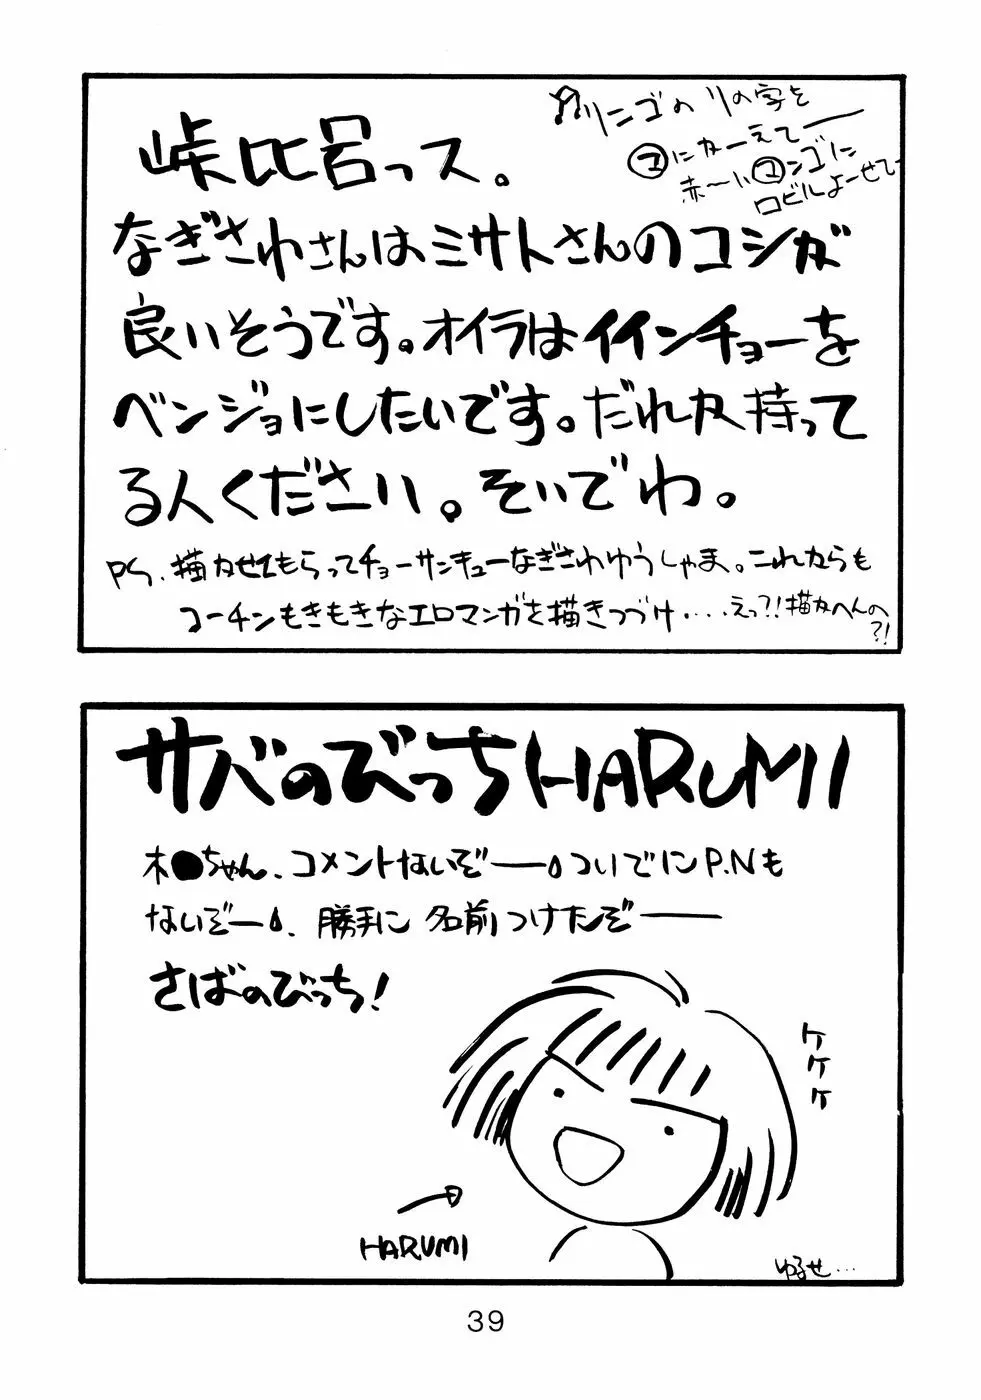 峠比呂っス。
なぎさわさんはミサトさんのコシが
良いそうです。オイラはイインチョーを
ベンジョにしたいです。だれか持って
る人ください。そいでわ。
リンゴのリの字を
マにかーえてー
赤〜いマンゴに
ロビルよーせてー
PS、描かせてもらってチョーサンキューなぎさわゆうしゃま。これからも
コーチンもきもきなエロマンガを描きつづけ・・・・えっ?!描かへんの
?!
サバのびっちHARUMI
木●ちゃん、コメントないぞー。ついでにP.Nも
ないぞー。勝手に名前つけたぞー
さばのびっち!
ケケケ
HARUMI
ゆるせ…
39